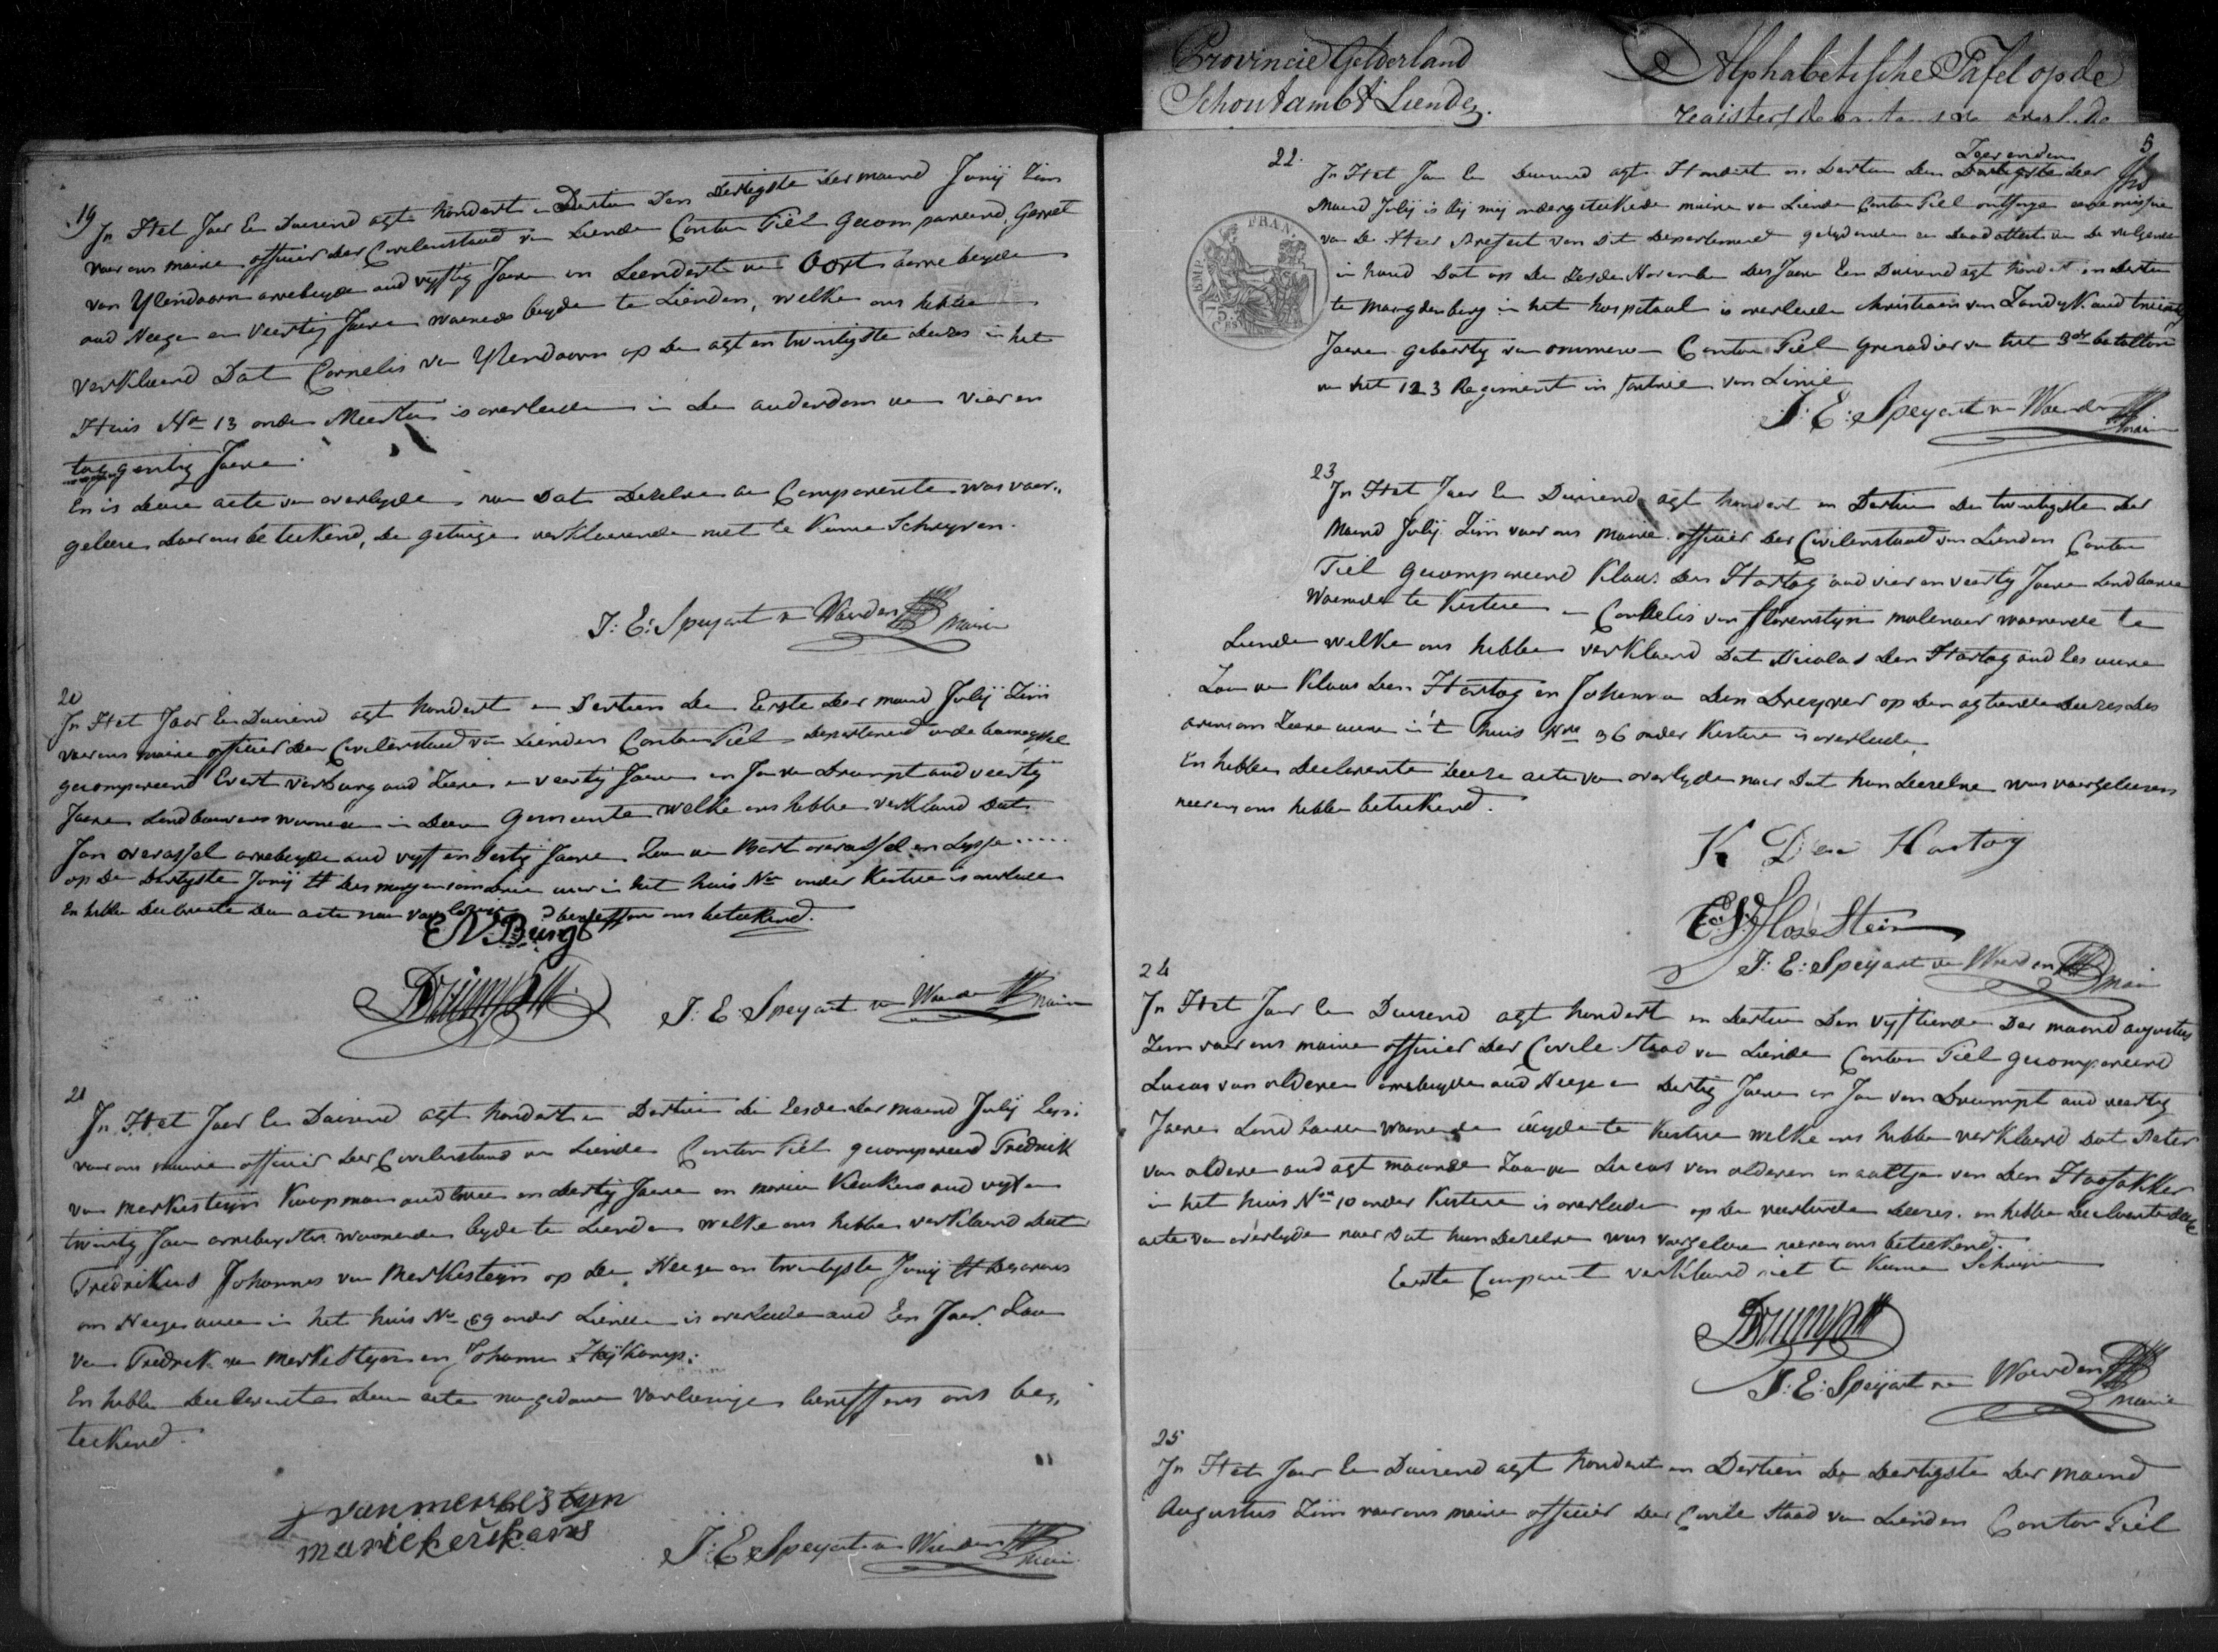 Provincie Gelderland
Schoutambt Lienden.
Alphabetische Tafel op de
registers de
19
In Het Jaar Een Duisend agt hondert en Dertien Den dertigste der maand Junij Zijn
voor ons maire officier der Civilenstaad van Lienden Canton Tiel gecompareerd, Gerret
van IJlendoorn arrebeyder oud vyftig Jaeren en Leendert van Oort arrebeyder
oud Neegen en Veertig Jaeren woenende beyde te Lienden, welke ons hebben
verklaard Dat Cornelis van IJlendoorn op den agt en twintigste deezes in het
Huis No 13 onder Meerten is overleeden in den ouderdom van vier en
taggentig Jaeren.
En is deeze acte van overlyden, na Dat Dezelve aan Comparente was voor„
geleezen door ons beteekend, de getuigen verklaarende niet te kunnen Schryven.
J: E: Speyart van Woerden maire
20
In Het Jaar Een Duisend agt hondert en Dertien den Eerste der maand Julij Zijn
voor ons maire officier der Civilenstaad van Lienden Canton Tiel Departement van de boven yssel
gecompareerd Evert verburg oud Zeeven en veertig Jaeren en Jan van Drumpt oud veertig
Jaeren Landbouwers woonende in deeze Gemeente welke ons hebben verklaard Dat
Jan overassel arrebeyder oud vyf en dertig Jaeren Zoon van Bart overassel en Lysje .....
op den dertigste Junij des morgens om drie uur in het huis No onder Kesteren is overleeden
En hebben declarante deze acte na voorleezing beneffens ons beteekend.
E V Burg
Drumpt
J: E: Speyart van Woerden maire
21
In Het Jaar Een Duisend agt hondert en Dertien den Zesde der maand Julij Zijn
voor ons maire officier der Civilenstaad van Lienden Canton Tiel gecompareerd Fredrik
van merkesteyn Koopman oud twee en dertig Jaeren en maria Keukens oud vyf en
twintig Jaar arrebeydster woonende beyde te Lienden welke ons hebben verklaard dat
Fredrikus Johannes van Merkesteyn op den Neegen en twintigste Junij des avonds
om Neegen uuren in het huis No 69 onder Lienden is overleeden oud Een Jaar Zoon
van Fredrik van merkesteyn en Johanna Heijkamp:
En hebben declarante deeze acte na gedaane voorleezinge beneffens ons be„
teekend.
f van merkesteyn
marie keukens
J: E: Speyart van Woerden maire
5
22.
In Het Jaar Een Duisend agt Hondert en Dertien Den Zeevenden der
Maand Julij is bij mij ondergeteekende maire van Lienden Canton Tiel ontfange eene missive
van De Heer Prefect van Dit Departement geleydende een Dood attest van De volgende
in houd Dat op den Zesde November des Jaars Een Duisend agt hondert en dertien
te Maagdenburg in het hospitaal is overleeden Christiaan van Zandyk oud twintig
Jaeren geboortig van ommeren Canton Tiel Grenadier van het 3de batallion
van het 123 Regiment in fantrie van Linie
J: E: Speyart van Woerden maire
FRAN.
EMP.
75
CES
23
In Het Jaar Een Duisend agt hondert en Dertien Den twintigste der
Maand Julij Zijn voor ons Maire officier der Civilenstaad van Lienden Canton
Tiel gecompareerd Klaas den Hartog oud vier en veertig Jaeren Landbouwer
woenende te Kesteren en Cornelis van florensteyn molenaar woenende te
Lienden welke ons hebben verklaard Dat Nicolas den Hartog oud Zes uuren
Zoon van Klaas den Hartog en Johanna den Dreyver op den agtiende deezes des
avons om Zeeven uuren in 't huis No 36 onder Kesteren is overleeden
En hebben declarante deeze acte van overlyden naar Dat hun dezelve was voorgeleezen
neevens ons hebben beteekend.
K Den Hartog
C: V: Florestein
J: E: Speyart van Woerden maire
24
In Het Jaar Een Duisend agt hondert en dertien Den vyftiende Der maand augustus
Zijn voor ons maire officier der Civile Staad van Lienden Canton Tiel gecompareerd
Lucas van alderen arrebeyder oud Neege en dertig Jaeren en Jan van Drumpt oud veertig
Jaeren Landbouwer woenende beyde te Kesteren welke ons hebben verklaard Dat Peter
van alderen oud agt maanden Zoon van Lucas van alderen en aaltje van den Haosakker
in het huis No 10 onder Kesteren is overleeden op den veertiende deezes. en hebben declarante deeze
acte van overlyden naar Dat hun Dezelve was voorgeleezen neevens ons beteekend.
Eerste Comparent verklaard niet te kunnen Schryven
Drumpt
J: E: Speyart van Woerden maire
25
In Het Jaar Een Duisend agt hondert en Dertien Den dertigste der maand
Augustus Zijn voor ons maire officier der Civile Staad van Lienden Canton Tiel